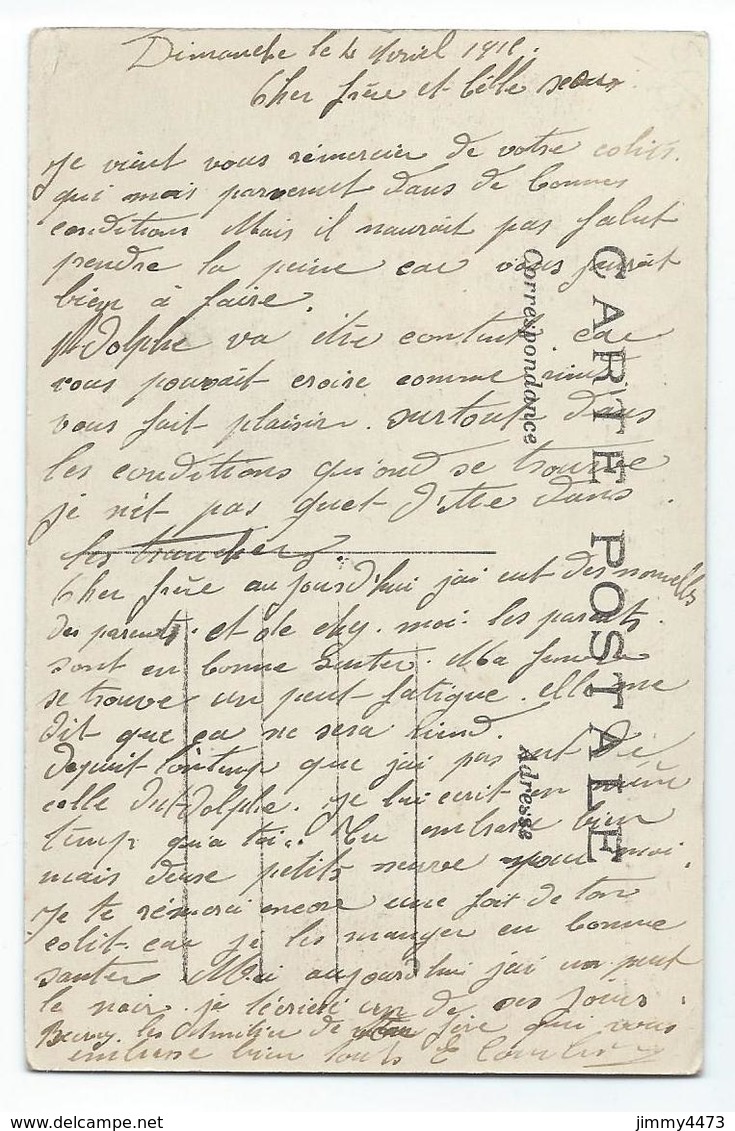 Dimanche le 4 Avril 191
Cher frère et bélle seour
Je vient vous rémercier de votre colits.
qui mois parvenut dans de bonnes
conditions Mais il naurait pas falut
prendre la peine car vous
bien à faire.
Dolphe va être contut. car
vous pouvait croire comme
vous fait plaisir. surtout dans
les conditions qu'ond se trouve
je n'ét pas guet d'ittre dans
les trancher.
Cher frère aujourd'hui jai eut des nouvelles
des parents. et de chz. moi. les parents.
sont en bonne santer. Ma femme
se trouve un peut fatigue. elle me
dit que ca ne sera riend.
depuit lontemp que jai pas eut de
celle dut Dolphe. je lui ecrit en même
temp qu'a toi. Tu embrase bien
mais deuse petits neuve pour moi.
Je te rémerci encore une foit de ton
colit. car je les manger en bonne
santer Moi aujourd'hui jai un peut
le noir. je técrirei un de ses jours.
les de frère qui vous
embrasse bien touts E
CARTE POSTALE
Correspondance
Adresse
jimmy4473